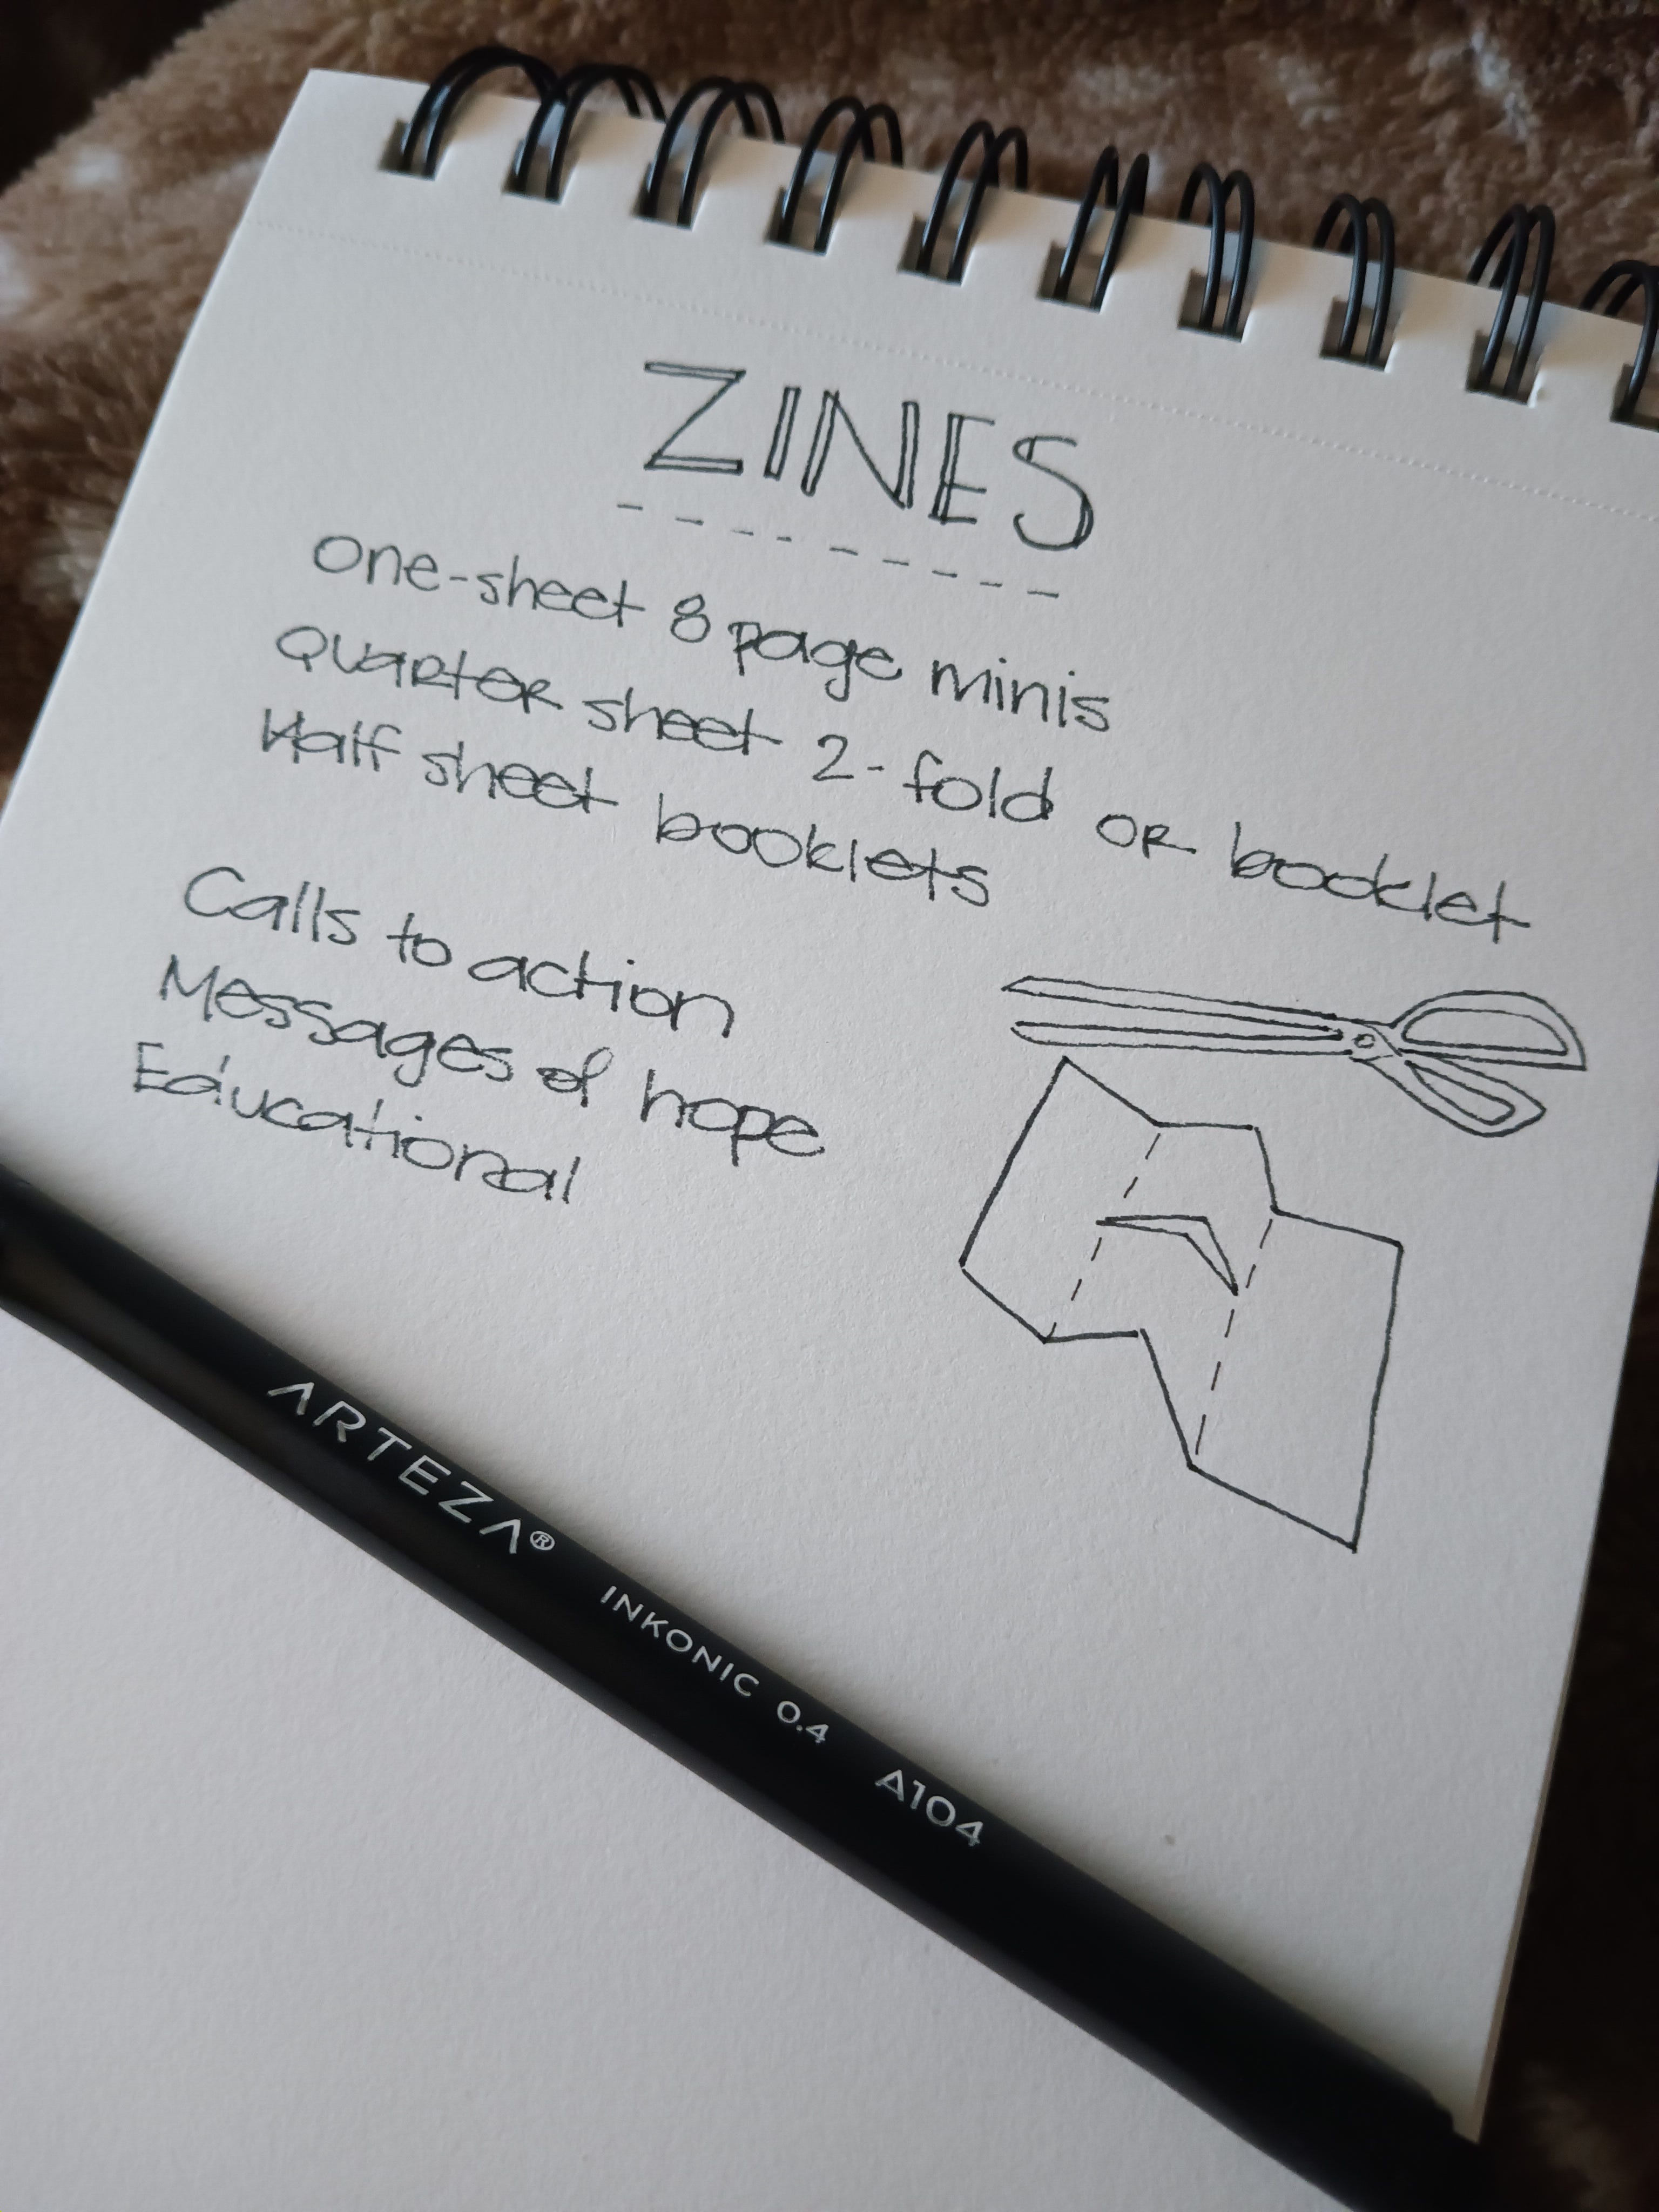 ZINES
One-sheet 8 page minis
Quarter sheet 2-fold or booklet
Half sheet booklets
Calls to action
Messages of hope
Educational
ARTEZA® INKONIC 0.4 A104